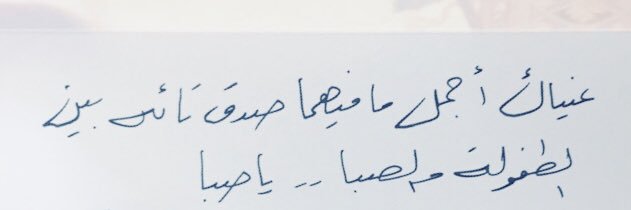 عيناك أجمل ما فيهما صدق تائه بين
الطفولة والصبا .. يا صبا